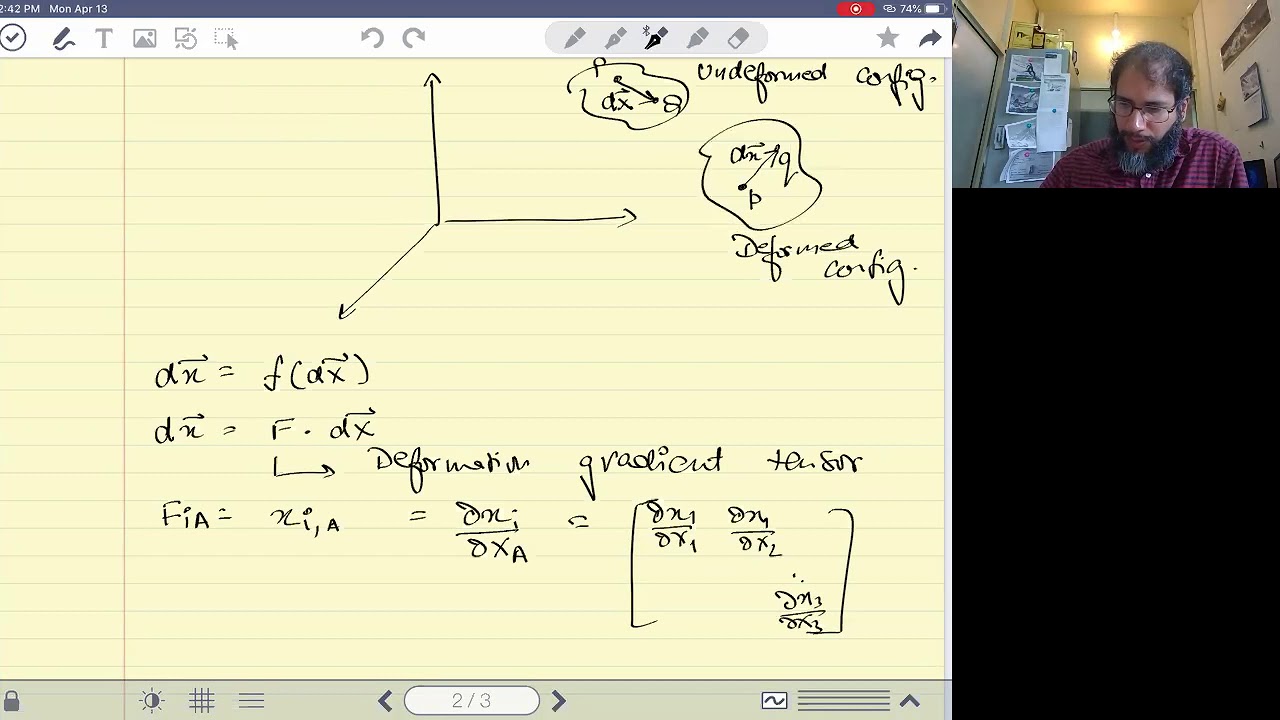 2:42 PM Mon Apr 13
74%
T
P
dX⃗ Q
Undeformed config.
dx⃗ q
p
Deformed
config.
dx⃗ = f(dX⃗)
dx⃗ = F · dX⃗
Deformation gradient tensor
FiA = xi,A = ∂xi/∂XA = [ ∂x1/∂X1 ∂x1/∂X2
⋱
∂x3/∂X3 ]
2 / 3